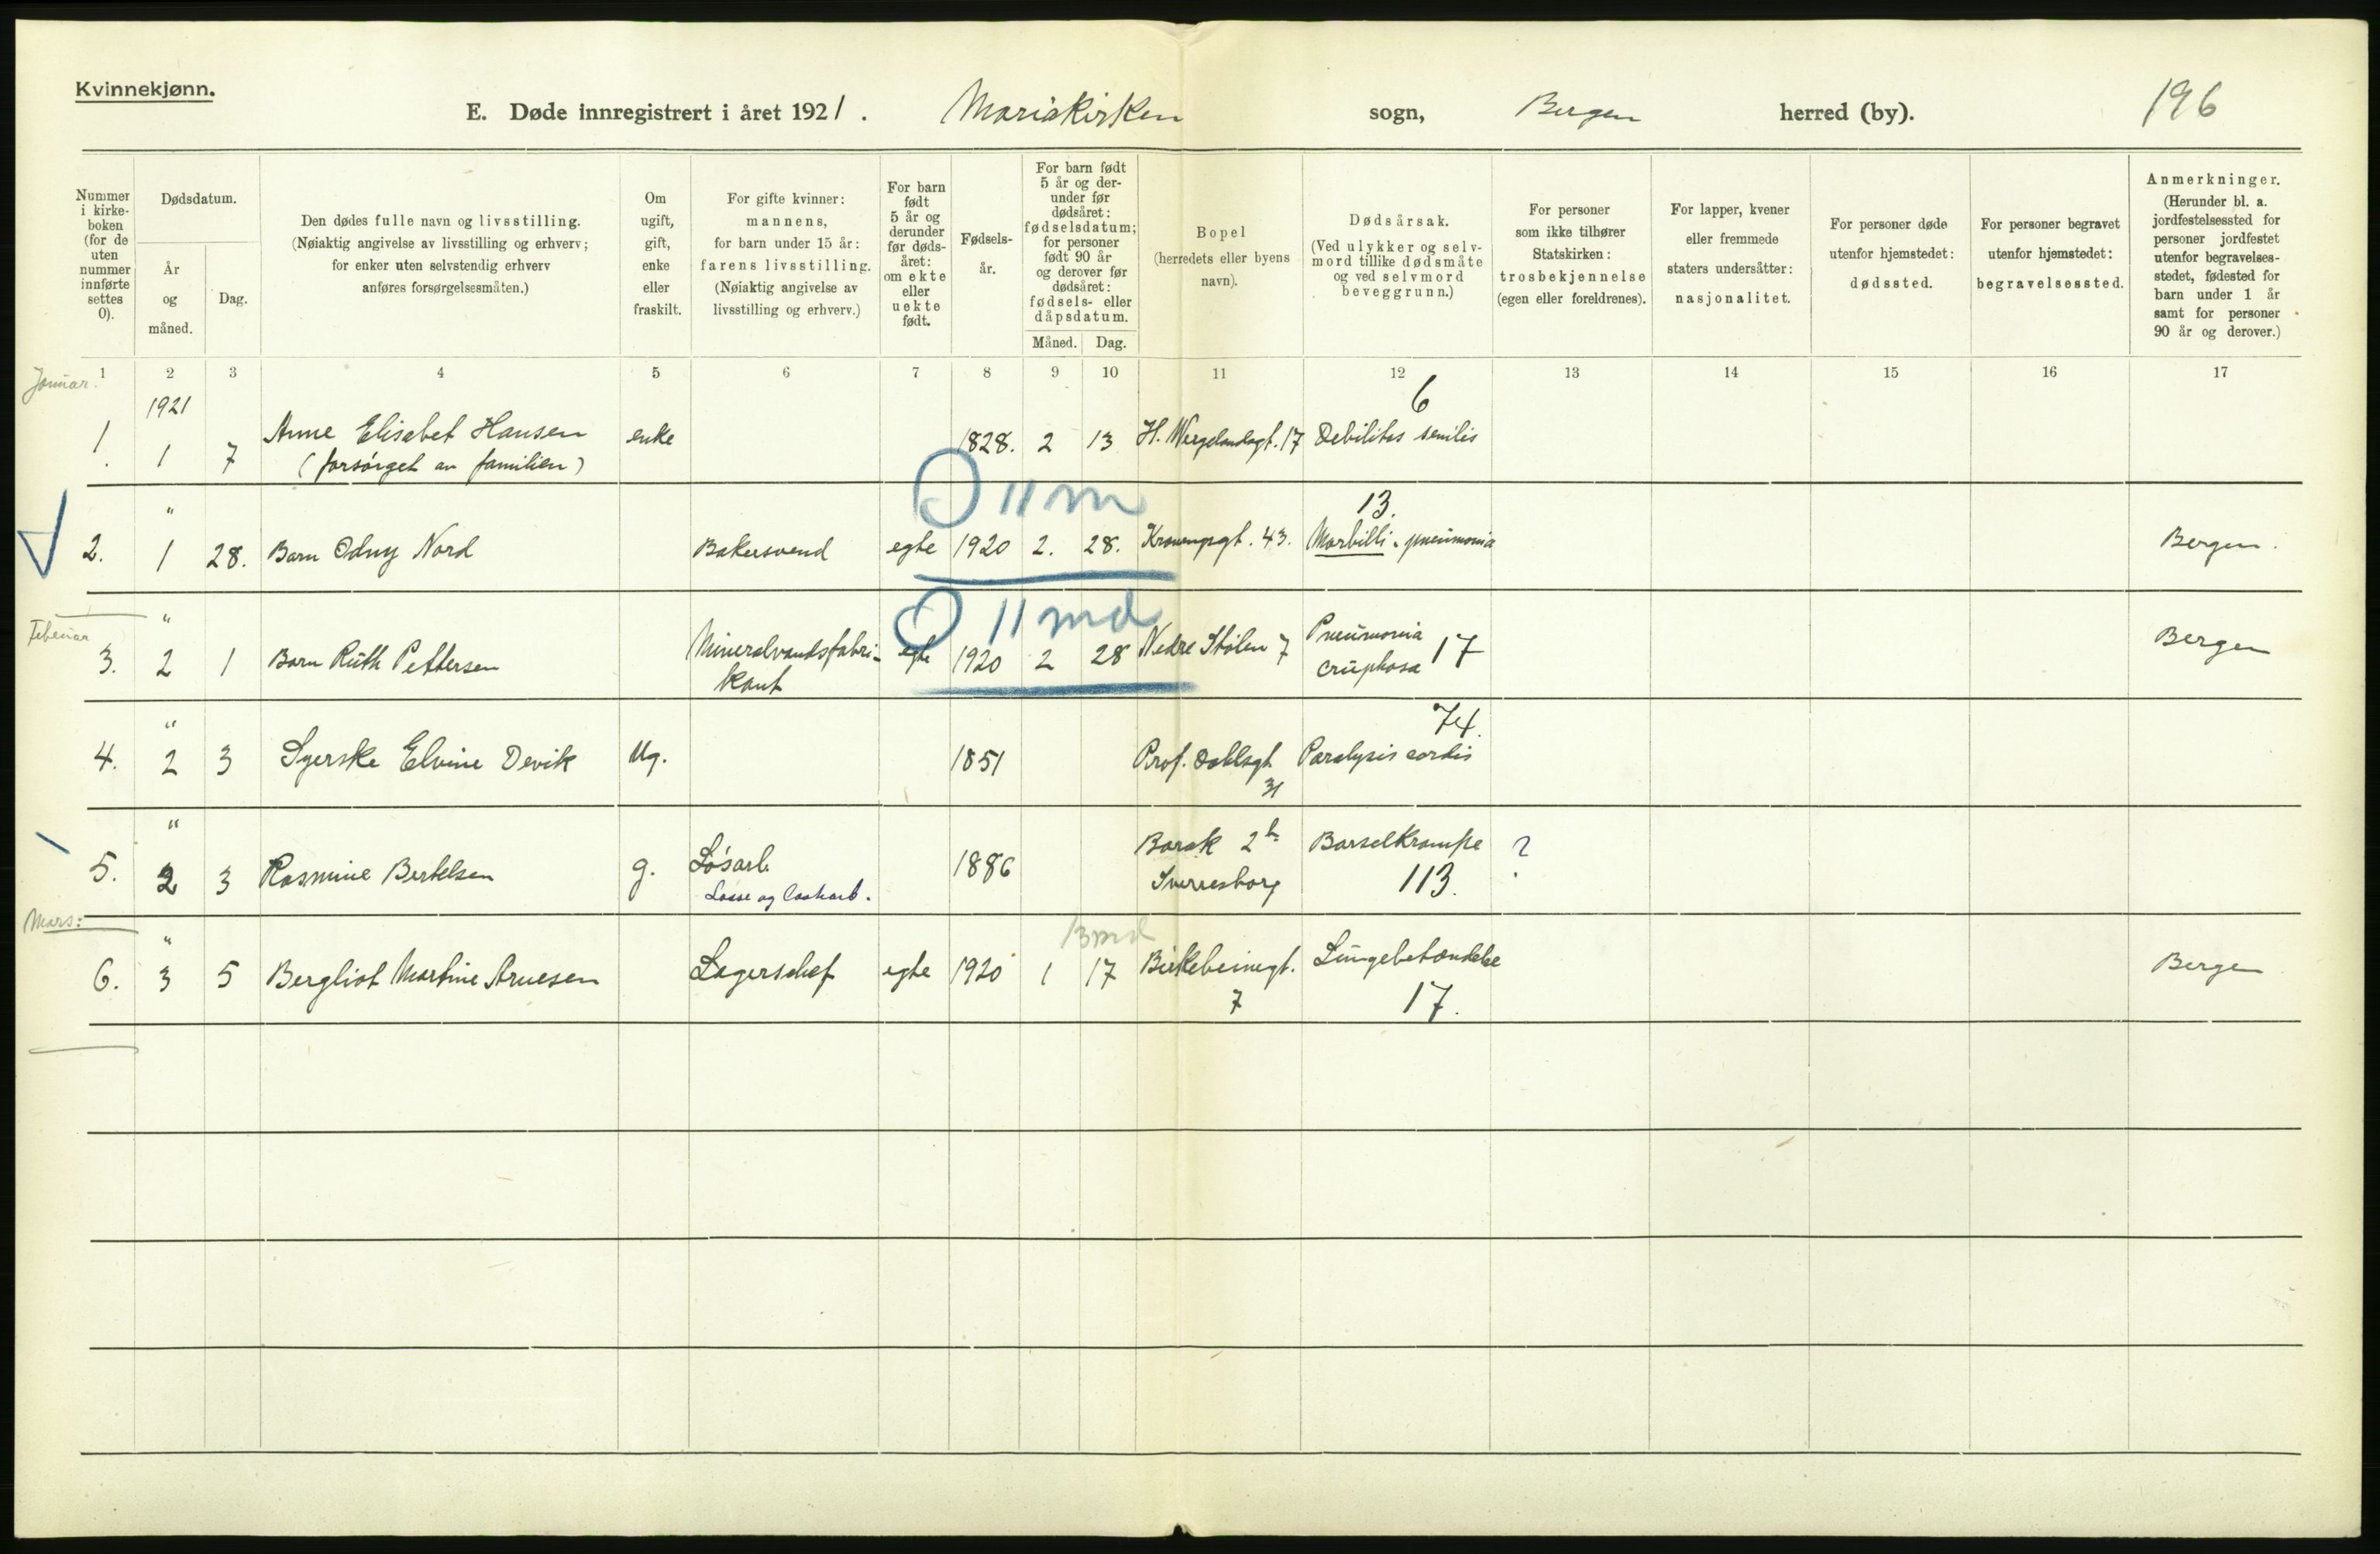 Kvinnekjønn.
E. Døde innregistrert i året 1921. Mariakirken sogn, Bergen herred (by). 196
Nummer i kirke-boken (for de uten nummer innførte settes 0).
Dødsdatum.
År og måned.
Dag.
Den dødes fulle navn og livsstilling.
(Nøiaktig angivelse av livsstilling og erhverv;
for enker uten selvstendig erhverv
anføres forsørgelsesmåten.)
Om
ugift,
gift,
enke
eller
fraskilt.
For gifte kvinner:
mannens,
for barn under 15 år:
farens livsstilling.
(Nøiaktig angivelse av
livsstilling og erhverv.)
For barn
født
5 år og
derunder
før døds-
året:
om ekte
eller
uekte
født.
Fødsels-
år.
For barn født
5 år og der-
under før
dødsåret:
fødselsdatum;
for personer
født 90 år
og derover før
dødsåret:
fødsels- eller
dåpsdatum.
Måned. Dag.
Bopel
(herredets eller byens
navn).
Dødsårsak.
(Ved ulykker og selv-
mord tillike dødsmåte
og ved selvmord
beveggrunn.)
For personer
som ikke tilhører
Statskirken:
trosbekjennelse
(egen eller foreldrenes).
For lapper, kvener
eller fremmede
staters undersåtter:
nasjonalitet.
For personer døde
utenfor hjemstedet:
dødssted.
For personer begravet
utenfor hjemstedet:
begravelsessted.
Anmerkninger.
(Herunder bl. a.
jordfestelsessted for
personer jordfestet
utenfor begravelses-
stedet, fødested for
barn under 1 år
samt for personer
90 år og derover.)
1 2 3 4 5 6 7 8 9 10 11 12 13 14 15 16 17
Januar.
1921
6
1. 1 7 Anne Elisabet Hansen enke 1828. 2 13 H. Wergelandsgt. 17 Debilitas senilis
(forsørget av familien)
11 m
" 13.
2. 1 28. Barn Odny Nord Bakersvend egte 1920 2. 28. 43. Morbilli. pneumonia Bergen.
11 md
Februar
"
3. 2 1 Barn Ruth Pettersen Mineralvandsfabri- egte 1920 2 28 Nedre Stølen 7 Pneumonia 17 Bergen
kant cruphosa
" 74.
4. 2 3 Syerske Elvine Devik Ug. 1851 Prof. Dahlsgt. Paralysis cordis
31
"
5. 2 3 Rasmine Bertelsen g. Løsarb. 1886 Barak 2 Barselkrampe ?
Losse og lastearb. Sverresborg 113.
Mars:
13 md
"
6. 3 5 Bergliot Martine Arnesen Lagerschef egte 1920 1 17 Birkebeinegt. Lungebetændelse Bergen
7 17.